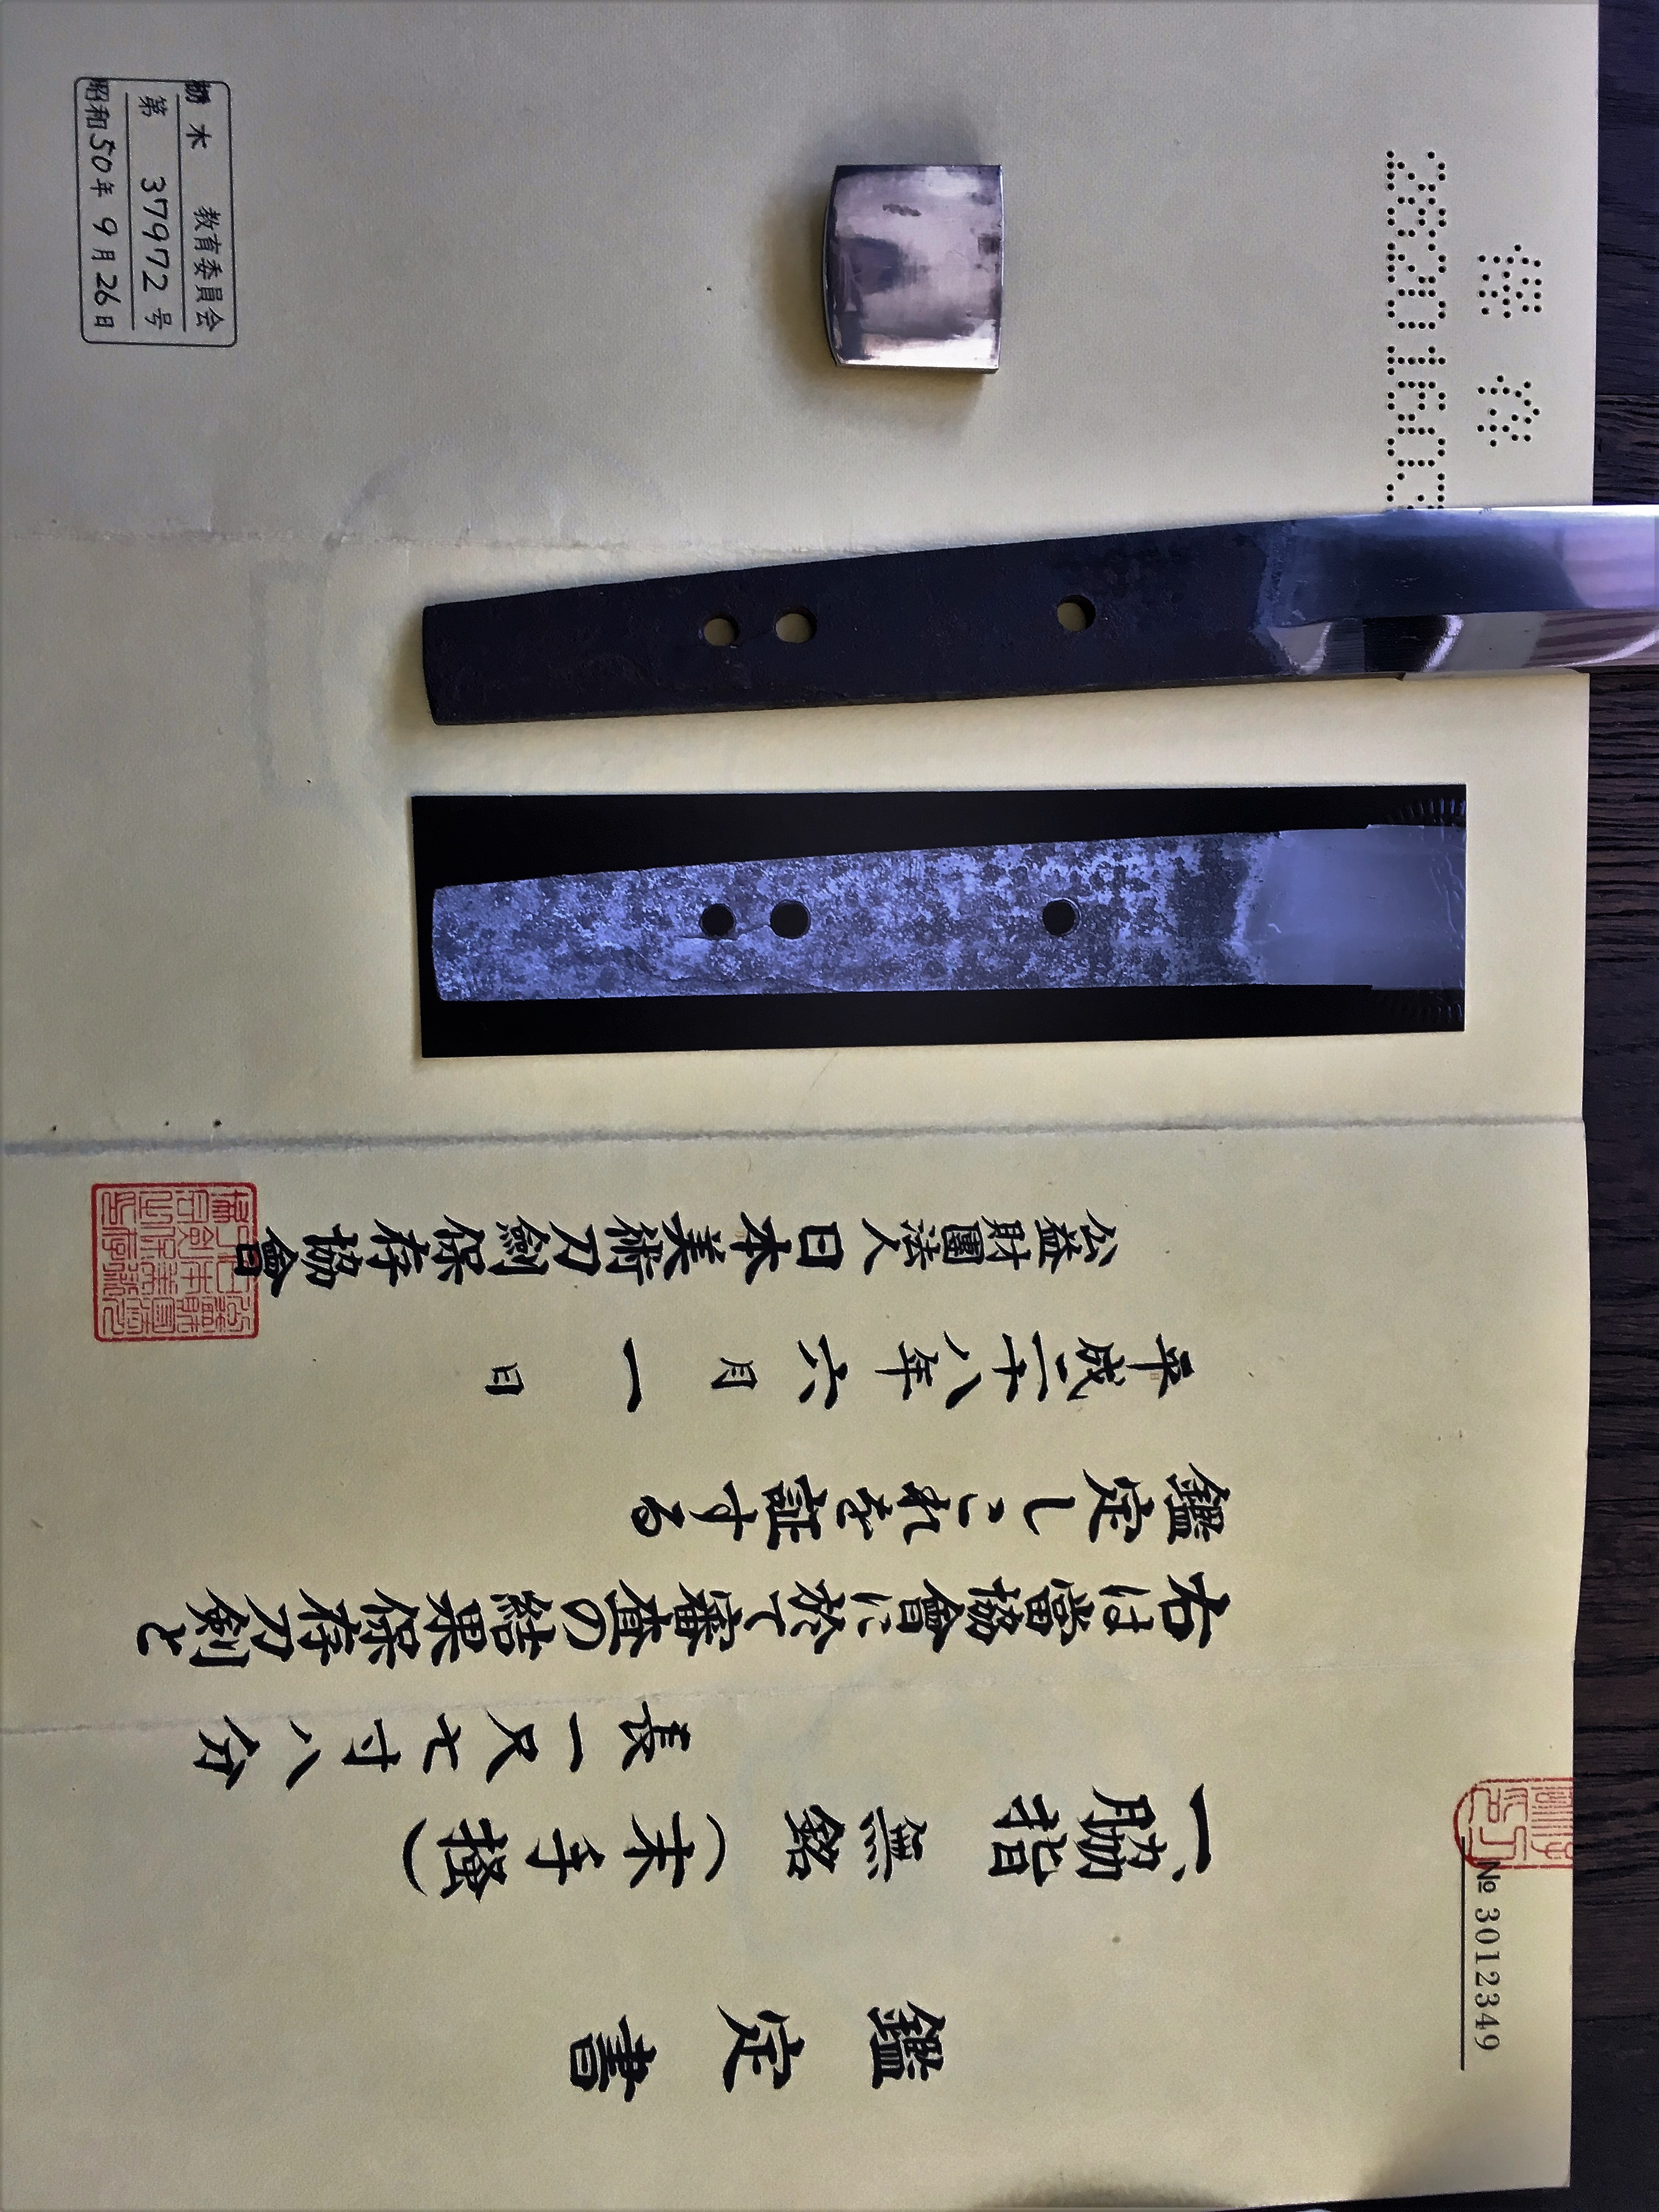 № 3012349
鑑定書
一、脇指 無銘(末手掻)
長一尺七寸八分
右は當協會に於て審査の結果保存刀剣と
鑑定しこれを証する
平成二十八年六月一日
公益財團法人日本美術刀劍保存協會
栃木 教育委員会
第 37972 号
昭和50年 9月26日